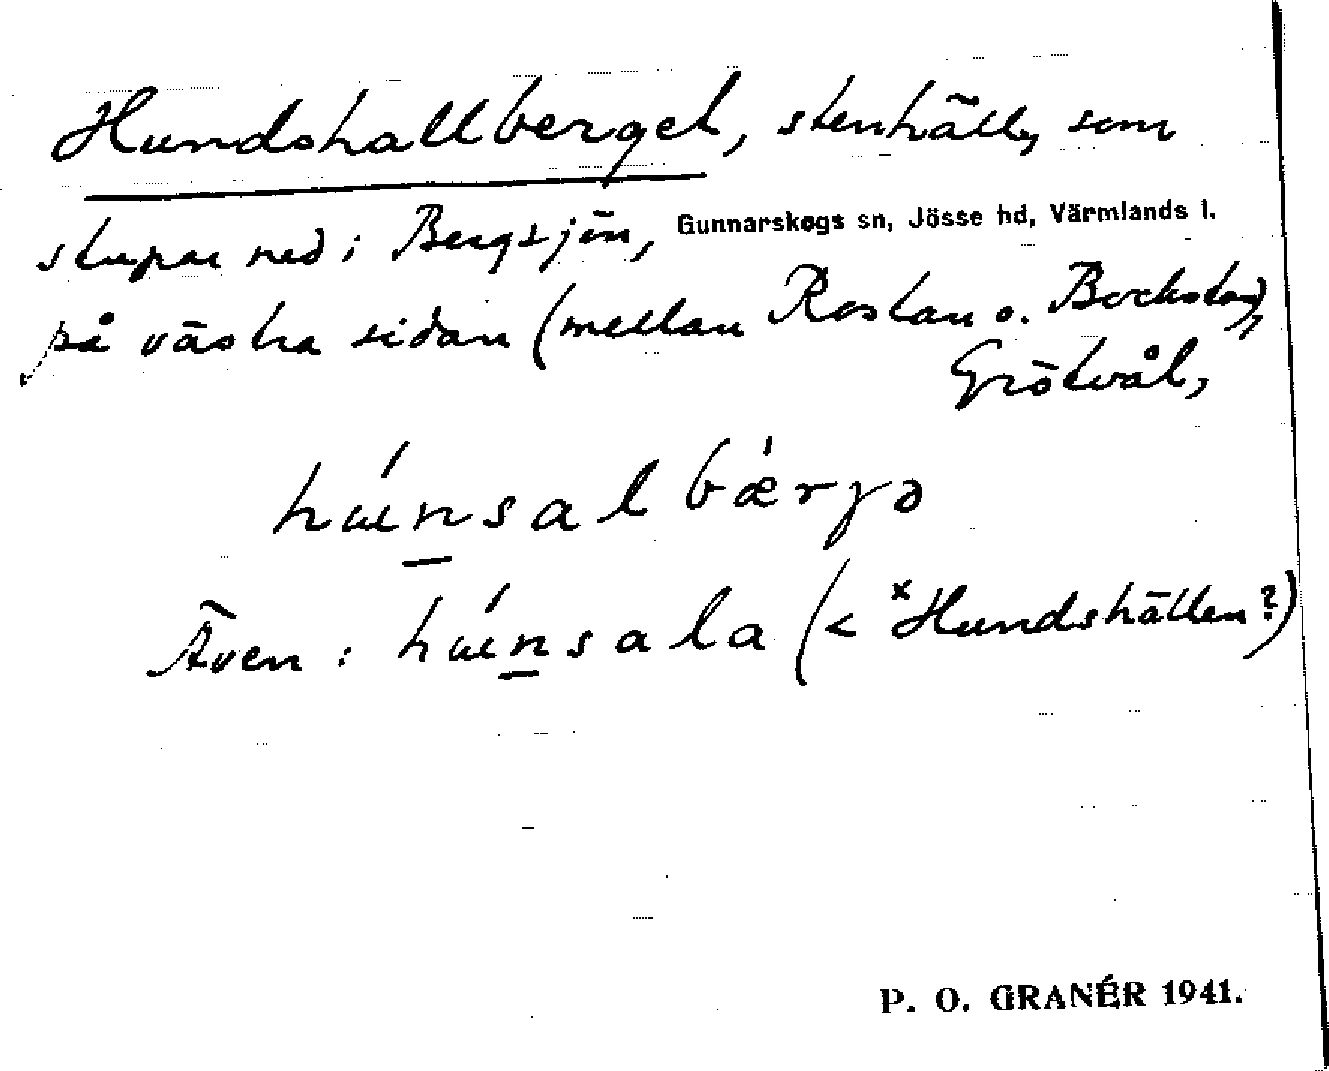 Hundshallberget, stenhäll, som
stupar ned i Bergsjön, Gunnarskogs sn, Jösse hd, Värmlands l.
på västra sidan (mellan Rostan o. Bockstad),
Grötvål,
húnsalbǽrjə
Även: húnsala (< ˣHundshällen?)
P. O. GRANÉR 1941.